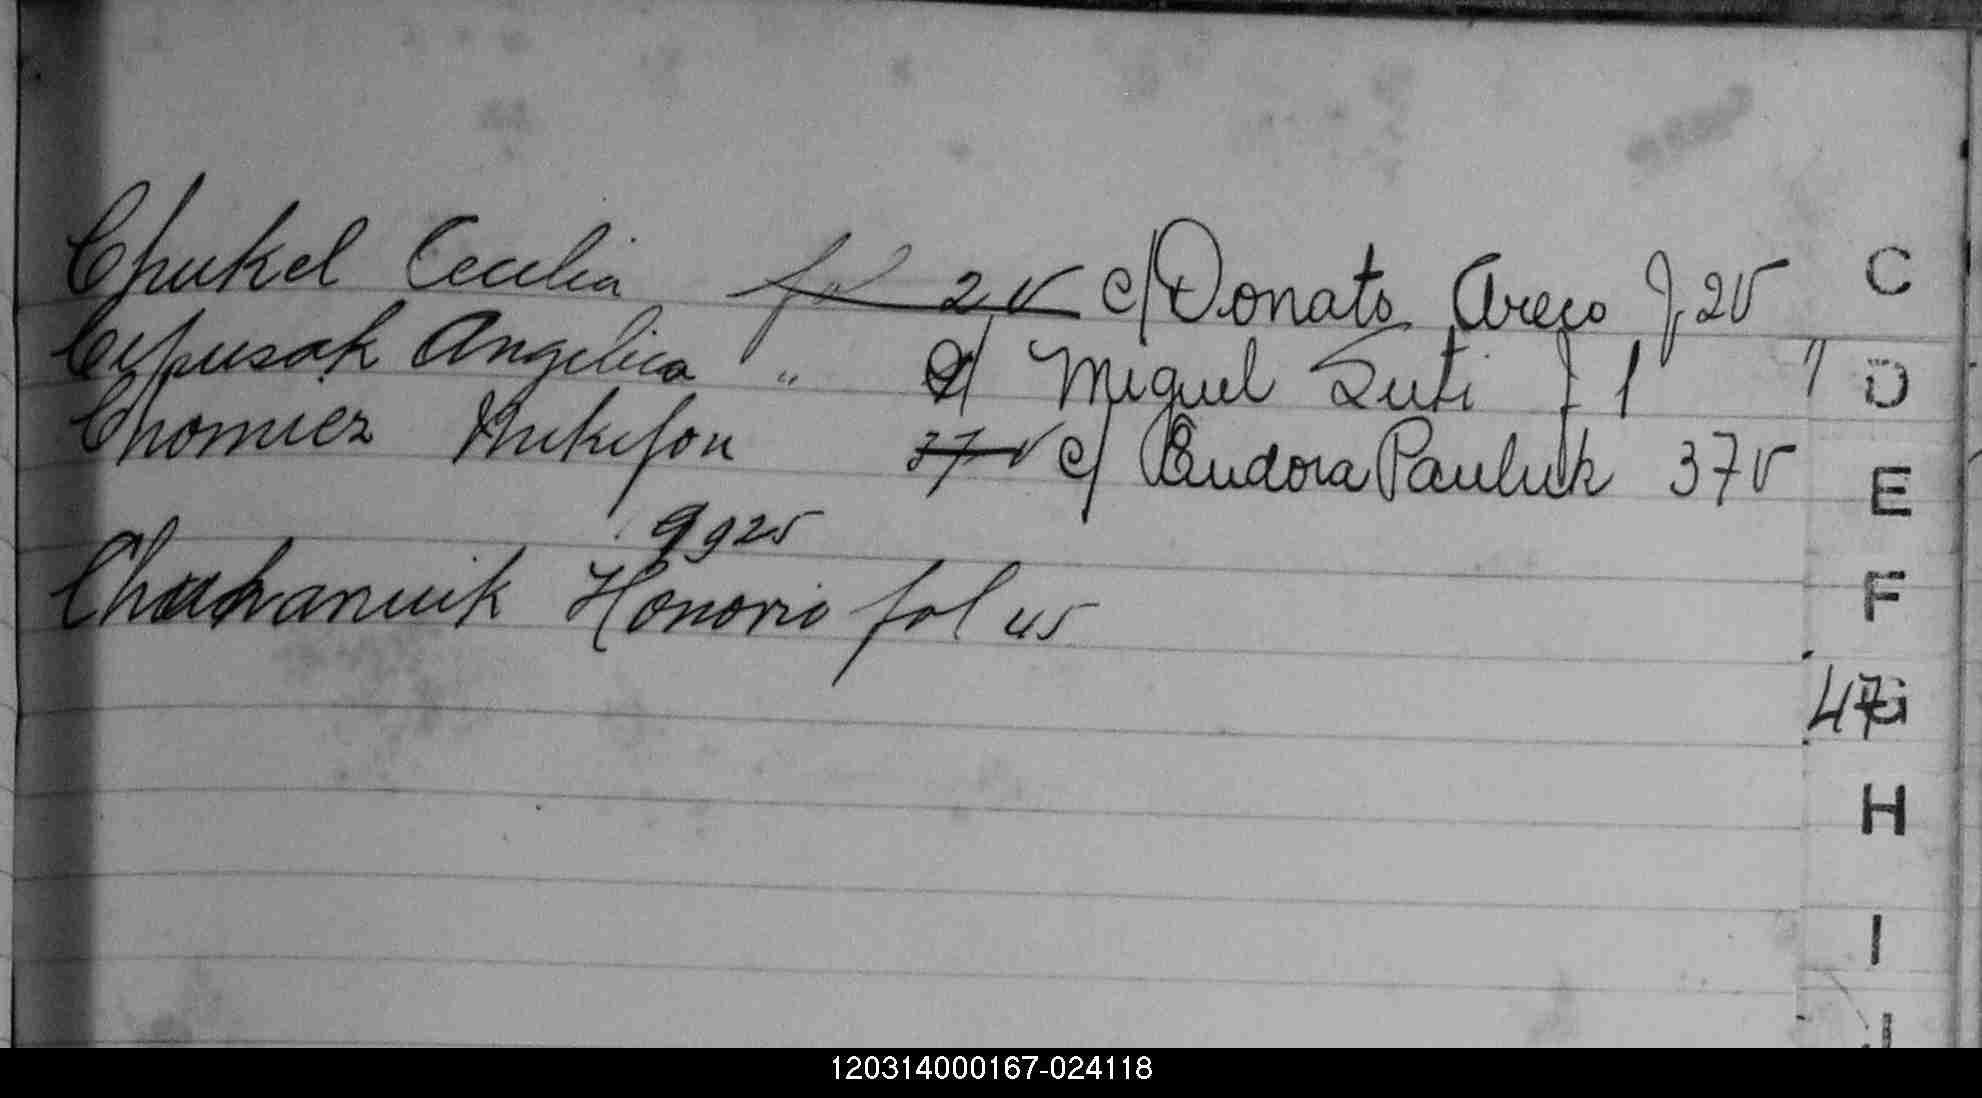 Chukel Cecilia fol 2 v c/ Donato Areco f 2v
Cepusak Angelica " c/ Miguel Suti f 1
Chomicz Nikifon 37 v c/ Eudora Pauluk 37v
9925
Honorio fol 45
C
D
E
F
47
G
H
I
J
120314000167-024118